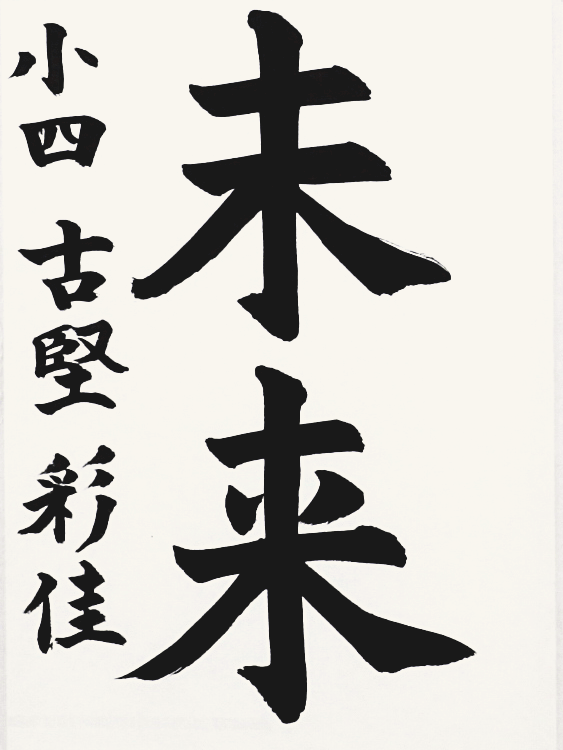 未来
小四 古堅 彩佳